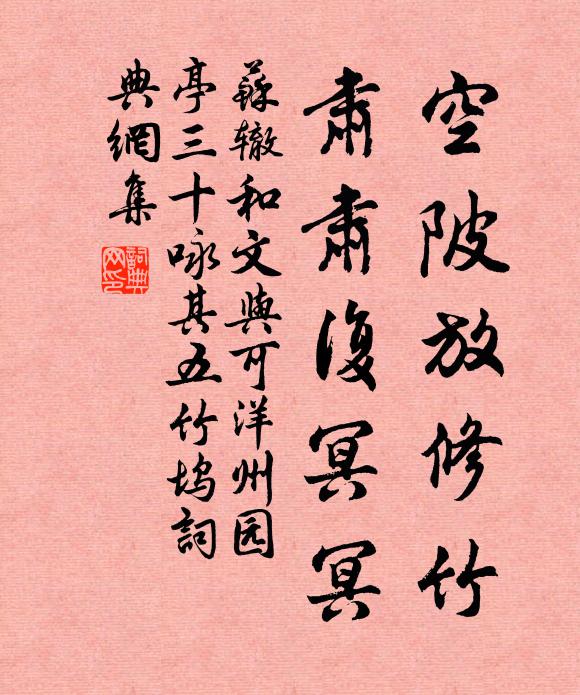 空陂放修竹
肅肅復冥冥
蘇辙和文與可洋州园
亭三十咏其五竹坞詞
典網集
詞典网印